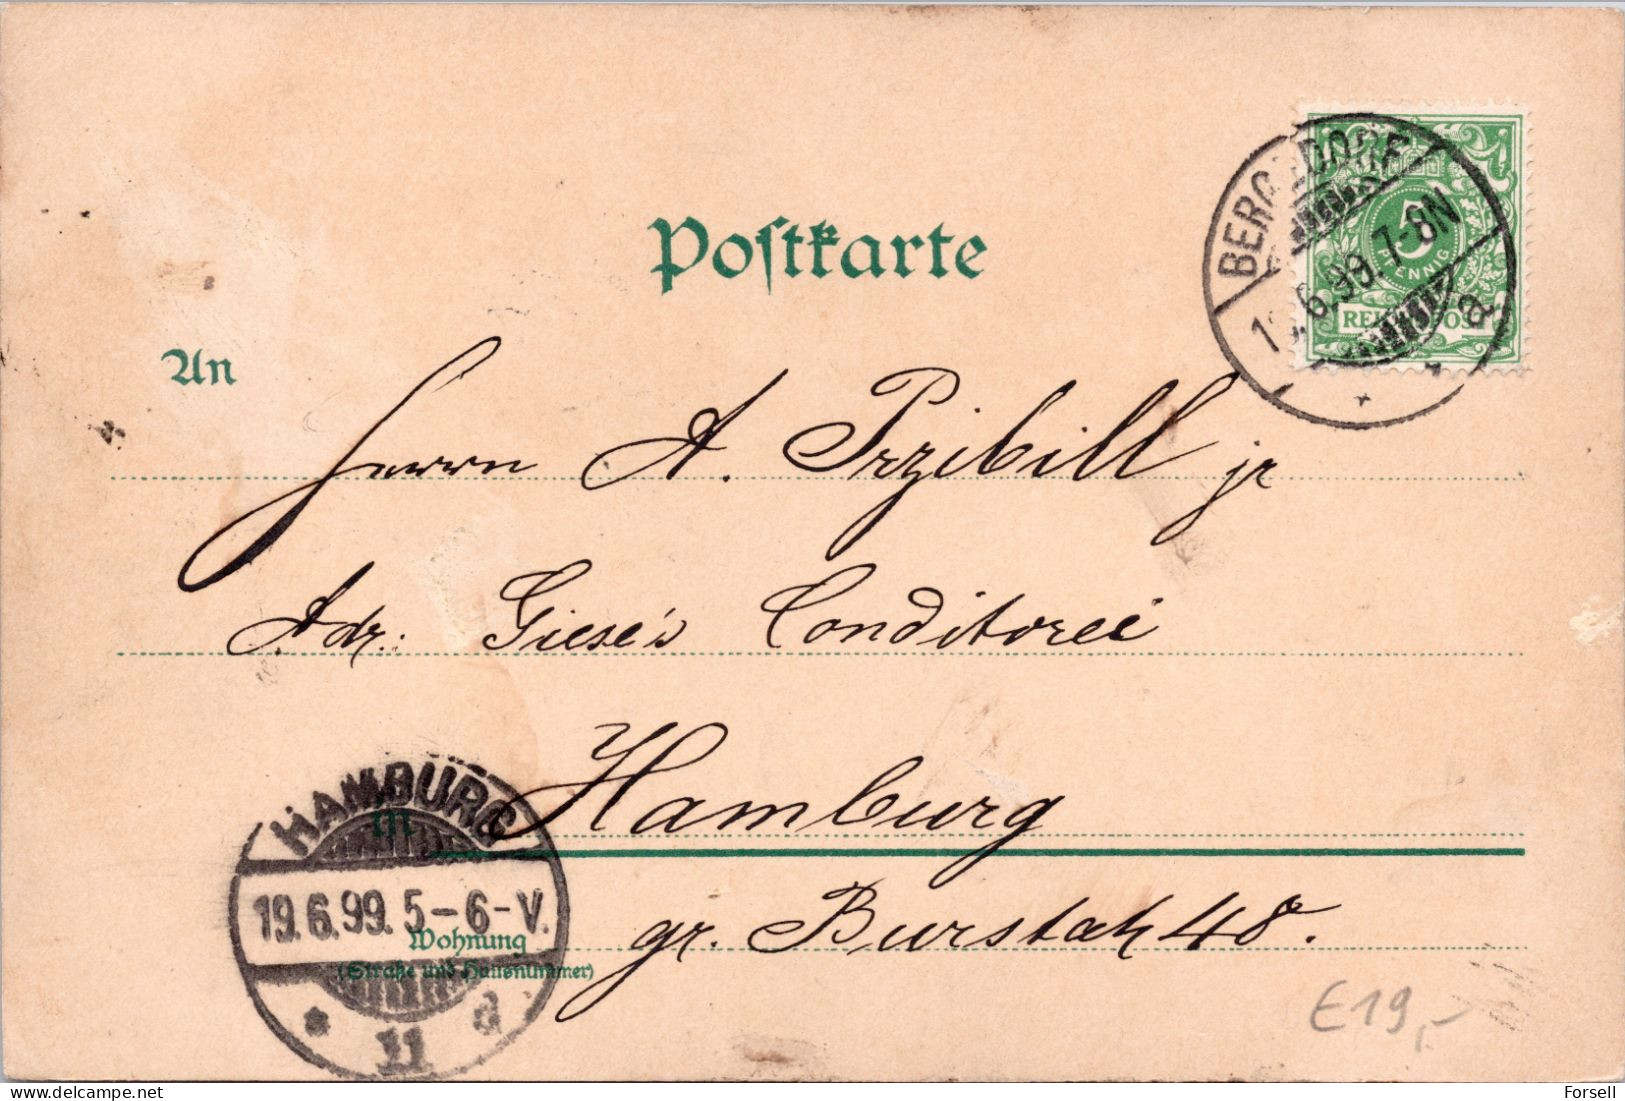 Postkarte
BERGEDORF
1 .6.99. 7-8N
a.
5
PFENNIG
An
Herrn A. Przibill jr
Adr: Giese's Conditorei
in Hamburg
gr. Burstah 48.
Wohnung
(Straße und Hausnummer)
HAMBURG
19.6.99. 5-6-V.
* 11 d
E19,-
Forsell